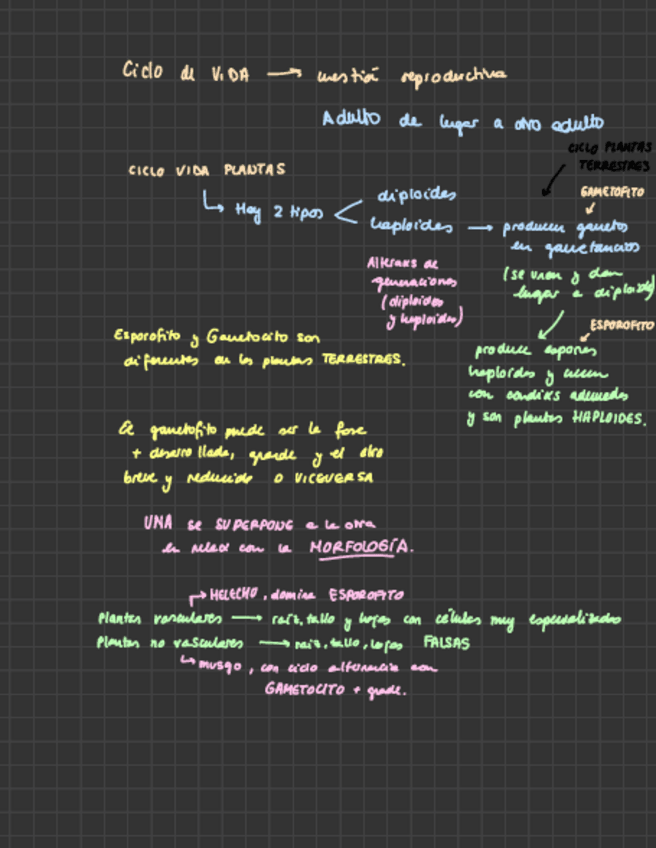 Ciclo de VIDA → cuestión reproductiva
Adulto de lugar a otro adulto
CICLO PLANTAS
TERRESTRES
CICLO VIDA PLANTAS
GAMETOFITO
↳ Hay 2 tipos < diploides
haploides → producen gametos
en gametangios
Alternas de
generaciones
(diploides
y haploides)
(se unen y dan
lugar a diploide)
ESPOROFITO
produce esporas
haploides y crecen
con condiks adecuadas
y son plantas HAPLOIDES.
Esporofito y Gametocito son
diferentes en las plantas TERRESTRES.
El gametofito puede ser la fase
+ desarrollada, grande y el otro
breve y reducido o VICEVERSA
UNA se SUPERPONE a la otra
en relacx con la MORFOLOGÍA.
→ HELECHO, domina ESPOROFITO
Plantas vasculares → raíz, tallo y hojas con células muy especializadas
Plantas no vasculares → raíz, tallo, hojas FALSAS
↳ musgo, con ciclo alternancia con
GAMETOCITO + grade.